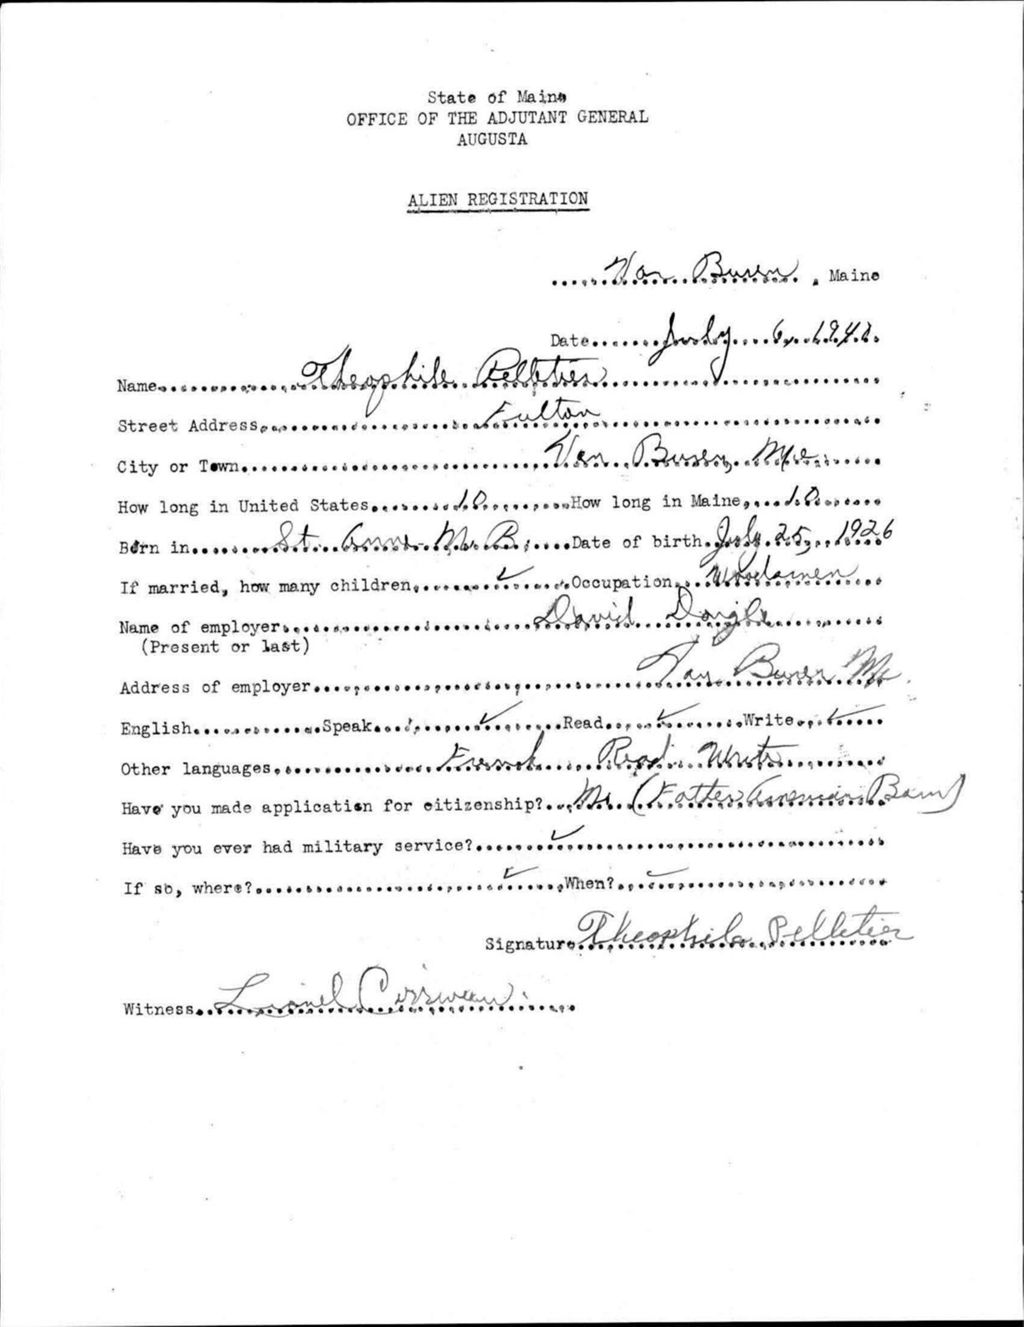 State of Maine
OFFICE OF THE ADJUTANT GENERAL
AUGUSTA
ALIEN REGISTRATION
Van Buren, Maine
Date July 6, 1940
Name Theophile Pelletier
Street Address Fulton
City or Town Van Buren, Me.
How long in United States 10 How long in Maine 10
Born in St. Anne N.B. Date of birth July 25, 1926
If married, how many children ✓ Occupation Woodsmen
Name of employer David Daigle
(Present or last)
Address of employer Van Buren Me.
English Speak ✓ Read ✓ Write ✓
Other languages French Read Write
Have you made application for citizenship? No (Father American Born)
Have you ever had military service? ✓
If so, where? ✓ When? ✓
Signature Theophile Pelletier
Witness Lionel